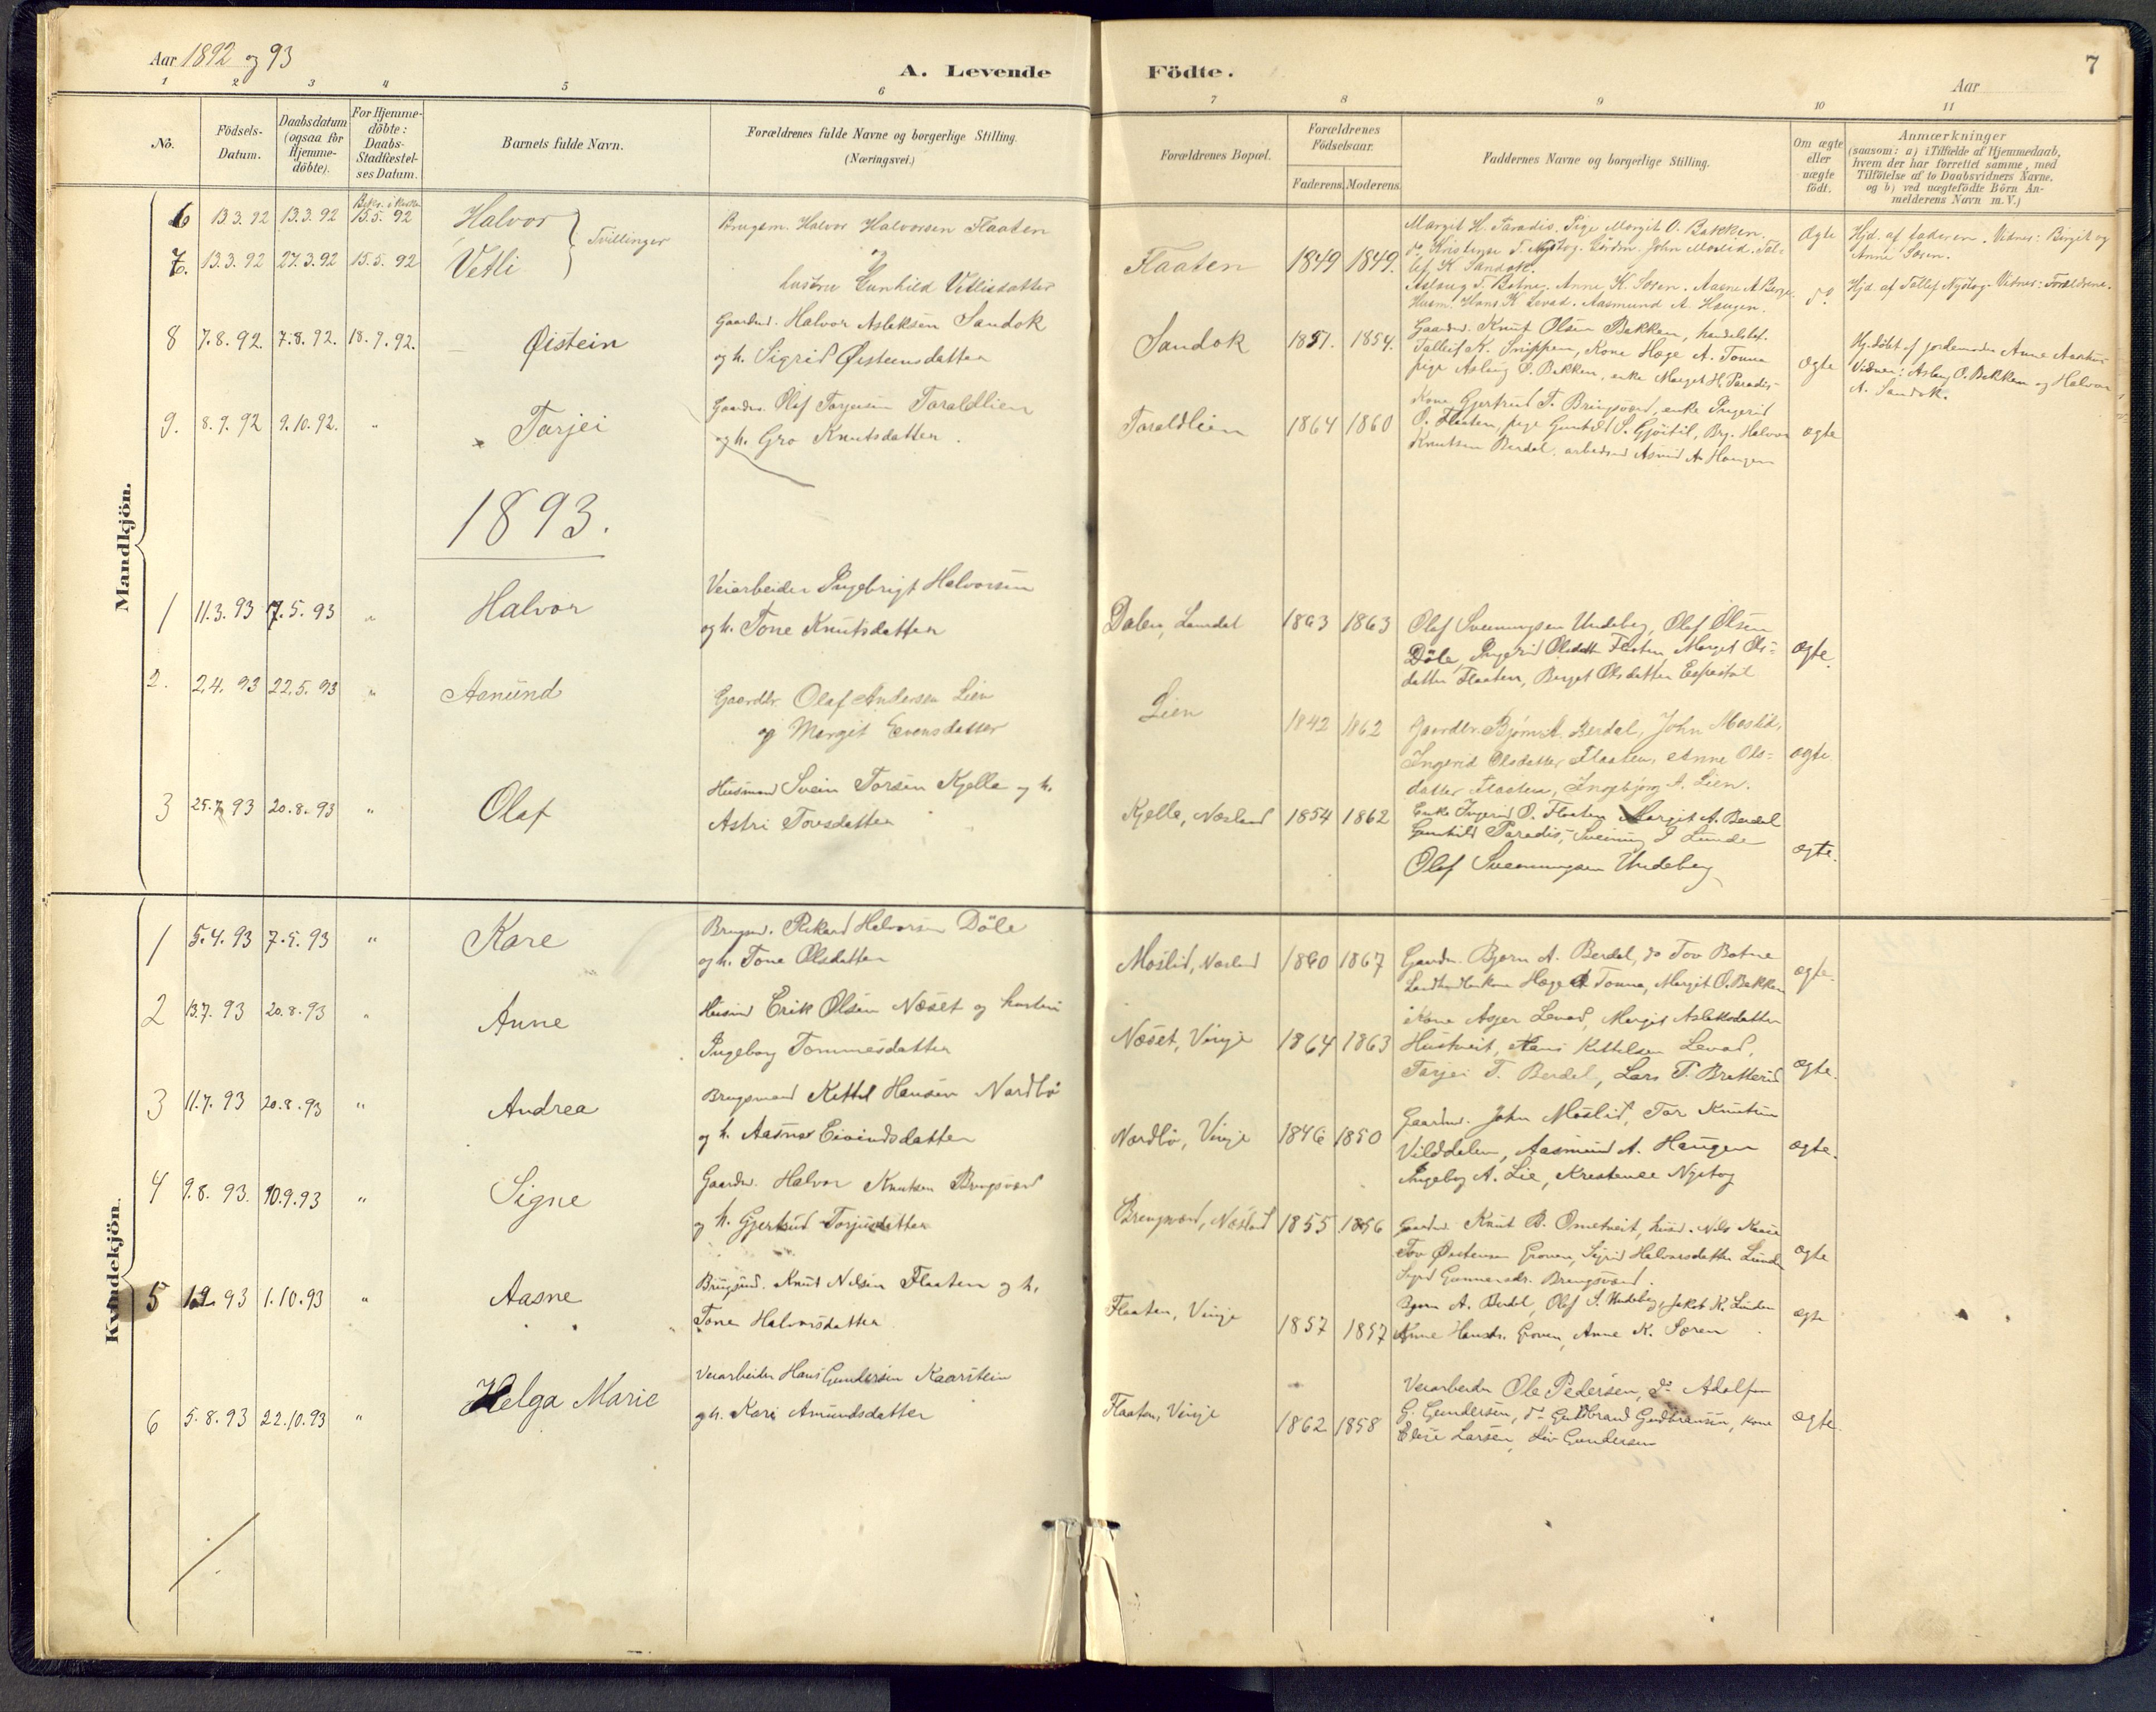 Aar 1892 og 93
A. Levende
Födte.
7
Aar
1 2 3 4 5 6 7 8 9 10 11
Nö.
Födsels-Datum.
Daabsdatum (ogsaa for Hjemme-döbte).
For Hjemme-döbte: Daabs-Stadfæstel-ses Datum.
Barnets fulde Navn.
Forældrenes fulde Navne og borgerlige Stilling.
(Næringsvei.)
Forældrenes Bopæl.
Forældrenes Födselsaar.
Faderens. Moderens.
Faddernes Navne og borgerlige Stilling.
Om ægte eller uægte födt.
Anmærkninger
(saasom: a) i Tilfælde af Hjemmedaab,
hvem der har forrettet samme, med
Tilföielse af to Daabsvidners Navne.
og b) ved uægtefödte Börn An-
melderens Navn m. V.)
Mandkjön.
6 13.3.92 13.3.92 15.5.92 Halvor
Tvillinger
7. 13.3.92 27.3.92 15.5.92 Vetli
Brugsm. Halvor Halvorsen Flaaten
og
hustru Gunhild Vetlisdatter
Flaaten 1849 1849.
Margit H. Paradis. Pige Margit O. Bakken.
Kristense T. Nystog. Gårdm. John Moslid. Tal-
lef K. Sandok.
Aslaug T. Botne. Anne K. Soren. Aasne A. Berge.
Husm. Hans K. Levad. Aasmund A. Haugen.
Ægte
do
Hjd. af faderen. Vidner: Birgit og
Anne Soren.
Hjd. af Tallef Nystog. Vidner: Forældrene.
8 7.8.92. 7.8.92. 18.9.92. Øistein
Gaardm. Halvor Asleksen Sandok
og h. Sigrid Øisteensdatter
Sandok 1851. 1854.
Gaardm. Knut Olsen Bakken, handelsbet.
Talleif K. Snippen, Kone Hæge A. Tonna
pige Aslaug O. Bakken, enke Marget H. Paradis
ægte
Hj. döbt af jordemoder Anne Aarhus
Vidner: Aslaug O. Bakken og Halvor
A. Sandok.
9. 8.9.92 9.10.92. " Tarjei
Gaardm. Olaf Torjusen Taraldlien
og h. Gro Knutsdatter.
Taraldlien 1864 1860
Kone Gjertrud T. Bringsværd, enke Ingerid
O. Flaaten, pige Gunhild S. Gjöitil, Brg. Halvor
Knutsen Berdal, arbeidsmd Asmund A. Haugen
ægte
1893.
1 11.3.93 7.5.93 " Halvor
Veiarbeider Ingebrigt Halvorsen
og h. Tone Knutsdatter
Dalen, Laurdal 1863 1863
Olaf Sveinungsen Undeberg, Olaf Olsen
Döle, Ingerid Olsdatter Flaaten Marget Ols-
datter Flaaten, Berget Olsdatter
ægte.
2. 2.4.93 22.5.93 " Asmund
Gaardbr. Olaf Andersen Lien
og Margit Evensdatter
Lien 1842 1862
Gaardbr. Bjørn A. Berdal, John Moslid,
Ingerid Olsdatter Flaaten, Anne Ols-
datter Flaaten, Ingebjørg A. Lien.
ægte
3 25.7.93 20.8.93 " Olaf
Husmand Svein Torsen Kjelle og h.
Astri Torsdatter
Kjelle, Nesland 1854 1862
Enke Ingerid O. Flaaten Margit A. Berdal
Gunhild Paradis, Sveinung J. Lunde
Olaf Sveinungsen Undeberg
ægte.
Kvindekjön.
1 5.4.93 7.5.93 " Kare
Brugsm. Rikard Halvorsen Döle
og h. Tone Olsdatter
Moslid, Nesland 1860 1867
Gaardm. Bjørn A. Berdal, do Tov Botne
Landhandlerkone Hæge A Tonna, Margit O. Bakken
ægte
2 13.7.93 20.8.93 " Anne
Husmd Erik Olsen Næset og hustru
Ingeborg Tommesdatter
Næset, Vinje 1864 1863
Kone Asjer Levad, Margit Asleksdatter
Hustveit, Hans Kittelsen Levad,
Tarjei T. Berdal, Lars T. Bratterud
ægte.
3 11.7.93 20.8.93 " Andrea
Brugsmand Kettel Hansen Nordbö
og h. Aasne Eivindsdatter
Nordbö, Vinje 1846 1850
Gaardm. John Moslid, Tor Knutsen
Vilddalen, Aasmund A. Haugen
Ingeborg A. Lie, Krestense Nystog
ægte.
4 9.8.93. 10.9.93 " Signe
Gaardm. Halvor Knutsen Bringsverd
og h. Gjertrud Torjusdatter
Bringsverd, Nesland 1855 1856
Gaardm. Knut B. Ometveit, husm. Nels Kaase
Tov Øisteinsen Groven, Sigrid Halvorsdatter Lunde
Sigrid Gunnarsdr. Bringsverd.
ægte
5 1.9.93 1.10.93 " Aasne
Brugsmd. Knut Nilsen Flaaten og h.
Tone Halvorsdatter
Flaaten, Vinje 1857 1857
Bjørn A. Berdal, Olaf S. Undeberg, Jakob K. Linden
Anne Hansdr. Groven, Anne K. Soren
ægte
6 5.8.93 22.10.93 " Helga Marie
Veiarbeider Hans Gundersen Kaarstein
og h. Kari Amundsdatter
Flaaten, Vinje 1862 1858
Veiarbeider Ole Pedersen, do Adolf
G. Gundersen, do Guldbrand Gudbransen, kone
Elise Larsen, Liv Gundersen
ægte.